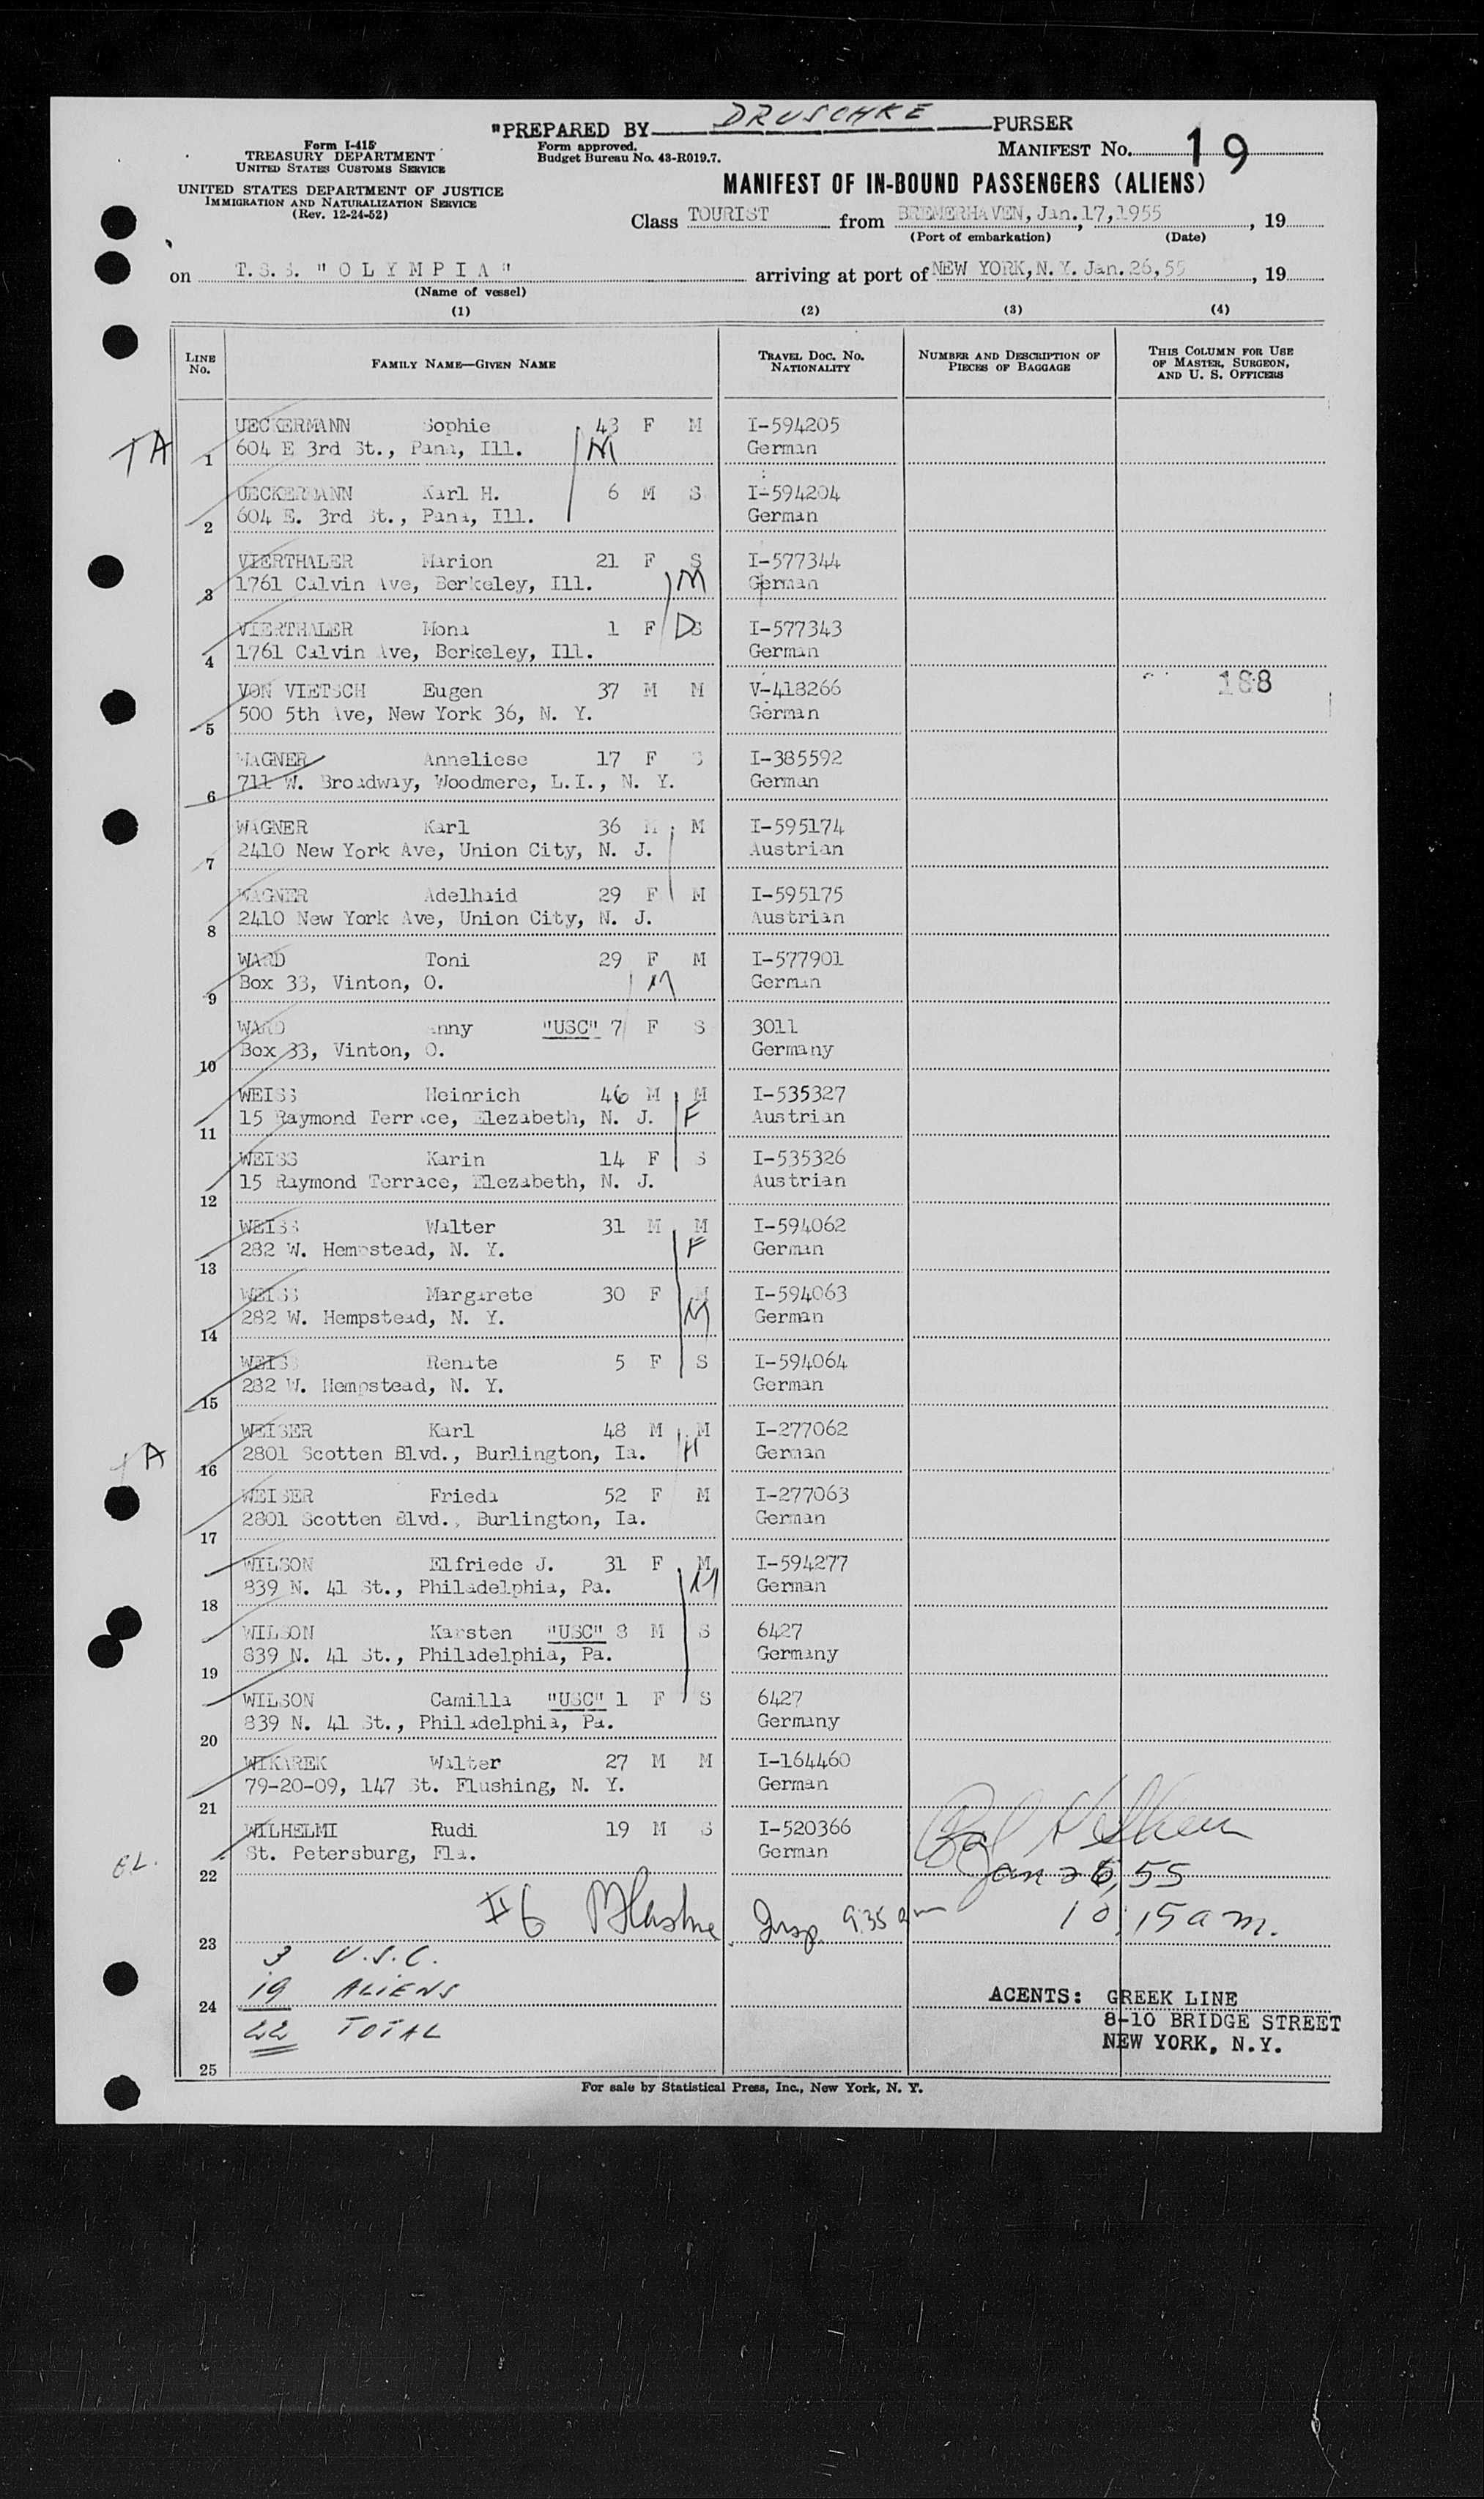 "PREPARED BY DRUSCHKE PURSER
Form I-415
TREASURY DEPARTMENT
UNITED STATES CUSTOMS SERVICE
Form approved.
Budget Bureau No. 43-R019.7.
MANIFEST No. 19
UNITED STATES DEPARTMENT OF JUSTICE
IMMIGRATION AND NATURALIZATION SERVICE
(Rev. 12-24-52)
MANIFEST OF IN-BOUND PASSENGERS (ALIENS)
Class TOURIST from BREMERHAVEN, Jan.17,1955, 19
(Port of embarkation) (Date)
on T.S.S. "OLYMPIA" arriving at port of NEW YORK,N.Y. Jan.26,55, 19
(Name of vessel)
(1) (2) (3) (4)
LINE No. FAMILY NAME—GIVEN NAME TRAVEL DOC. NO. NATIONALITY NUMBER AND DESCRIPTION OF PIECES OF BAGGAGE THIS COLUMN FOR USE OF MASTER, SURGEON, AND U. S. OFFICERS
UECKERMANN Sophie 43 F M I-594205
TA 1 604 E 3rd St., Pana, Ill. M German
UECKERMANN Karl H. 6 M S I-594204
2 604 E. 3rd St., Pana, Ill. German
VIERTHALER Marion 21 F S I-577344
3 1761 Calvin Ave, Berkeley, Ill. M German
VIERTHALER Mona 1 F D S I-577343
4 1761 Calvin Ave, Berkeley, Ill. German
VON VIETSCH Eugen 37 M M V-418266 188
5 500 5th Ave, New York 36, N. Y. German
WAGNER Anneliese 17 F S I-385592
6 711 W. Broadway, Woodmere, L.I., N. Y. German
WAGNER Karl 36 M M I-595174
7 2410 New York Ave, Union City, N. J. Austrian
WAGNER Adelhaid 29 F M I-595175
8 2410 New York Ave, Union City, N. J. Austrian
WARD Toni 29 F M I-577901
9 Box 33, Vinton, O. M German
WARD Anny "USC" 7 F S 3011
10 Box 33, Vinton, O. Germany
WEISS Heinrich 46 M M I-535327
11 15 Raymond Terrace, Elezabeth, N. J. F Austrian
WEISS Karin 14 F S I-535326
12 15 Raymond Terrace, Elezabeth, N. J. Austrian
WEISS Walter 31 M M I-594062
13 282 W. Hempstead, N. Y. F German
WEISS Margarete 30 F M I-594063
14 282 W. Hempstead, N. Y. M German
WEISS Renate 5 F S I-594064
15 282 W. Hempstead, N. Y. German
WEISER Karl 48 M M I-277062
TA 16 2801 Scotten Blvd., Burlington, Ia. H German
WEISER Frieda 52 F M I-277063
17 2801 Scotten Blvd., Burlington, Ia. German
WILSON Elfriede J. 31 F M I-594277
18 839 N. 41 St., Philadelphia, Pa. M German
WILSON Karsten "USC" 8 M S 6427
19 839 N. 41 St., Philadelphia, Pa. Germany
WILSON Camilla "USC" 1 F S 6427
20 839 N. 41 St., Philadelphia, Pa. Germany
WIKAREK Walter 27 M M I-164460
21 79-20-09, 147 St. Flushing, N. Y. German
WILHELMI Rudi 19 M S I-520366
22 St. Petersburg, Fla. German
Jan 26, 55
23 #6 Insp. 9:35 am 10:15 a m.
3 U.S.C.
24 19 ALIENS
22 TOTAL
25
AGENTS: GREEK LINE
8-10 BRIDGE STREET
NEW YORK, N.Y.
For sale by Statistical Press, Inc., New York, N. Y.